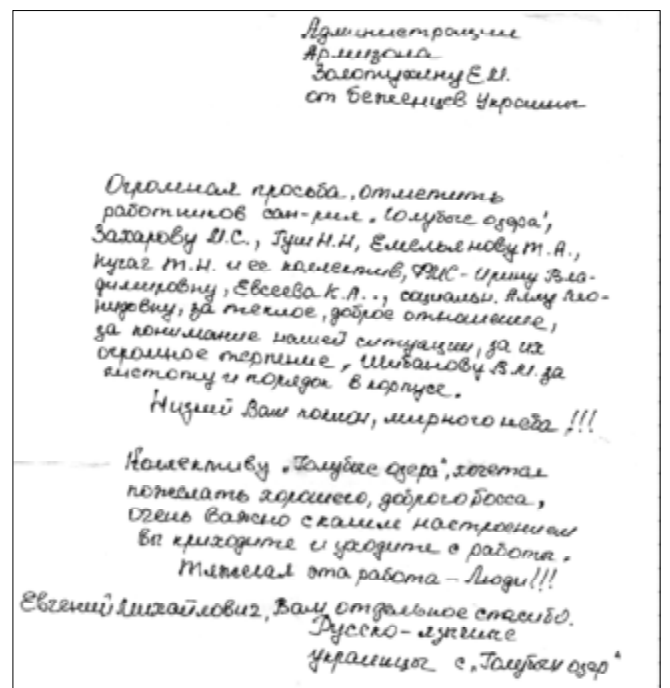 Администрации
Армизона
Золотухину Е.М.
от беженцев Украины
Огромная просьба, отметить
работников сан-рия „Голубые озёра",
Захарову И.С., Гуш Н.Н, Емельянову Т.А.,
Пугач Т.Н. и ее коллектив, ФМС - Ирину Вла-
димировну, Евсеева К.А.., социальн. Аллу Лео-
нидовну, за теплое, доброе отношение,
за понимание нашей ситуации, за их
огромное терпение, Шибанову В.М. за
чистоту и порядок в корпусе.
Низкий Вам поклон, мирного неба!!!
Коллективу „Голубые озера", хочется
пожелать хорошего, доброго босса,
очень важно с каким настроением
вы приходите и уходите с работы.
Тяжелая эта работа - Люди!!!
Евгений Михайлович, Вам отдельное спасибо.
Русско-
украинцы с „Голубых озер"